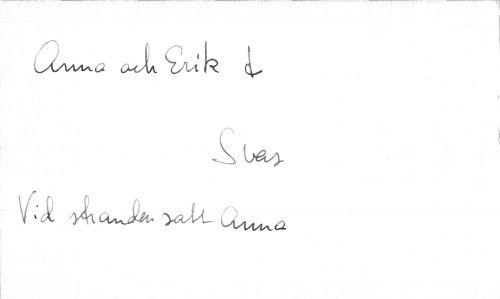 Anna och Erik &
Svar
Vid stranden satt Anna